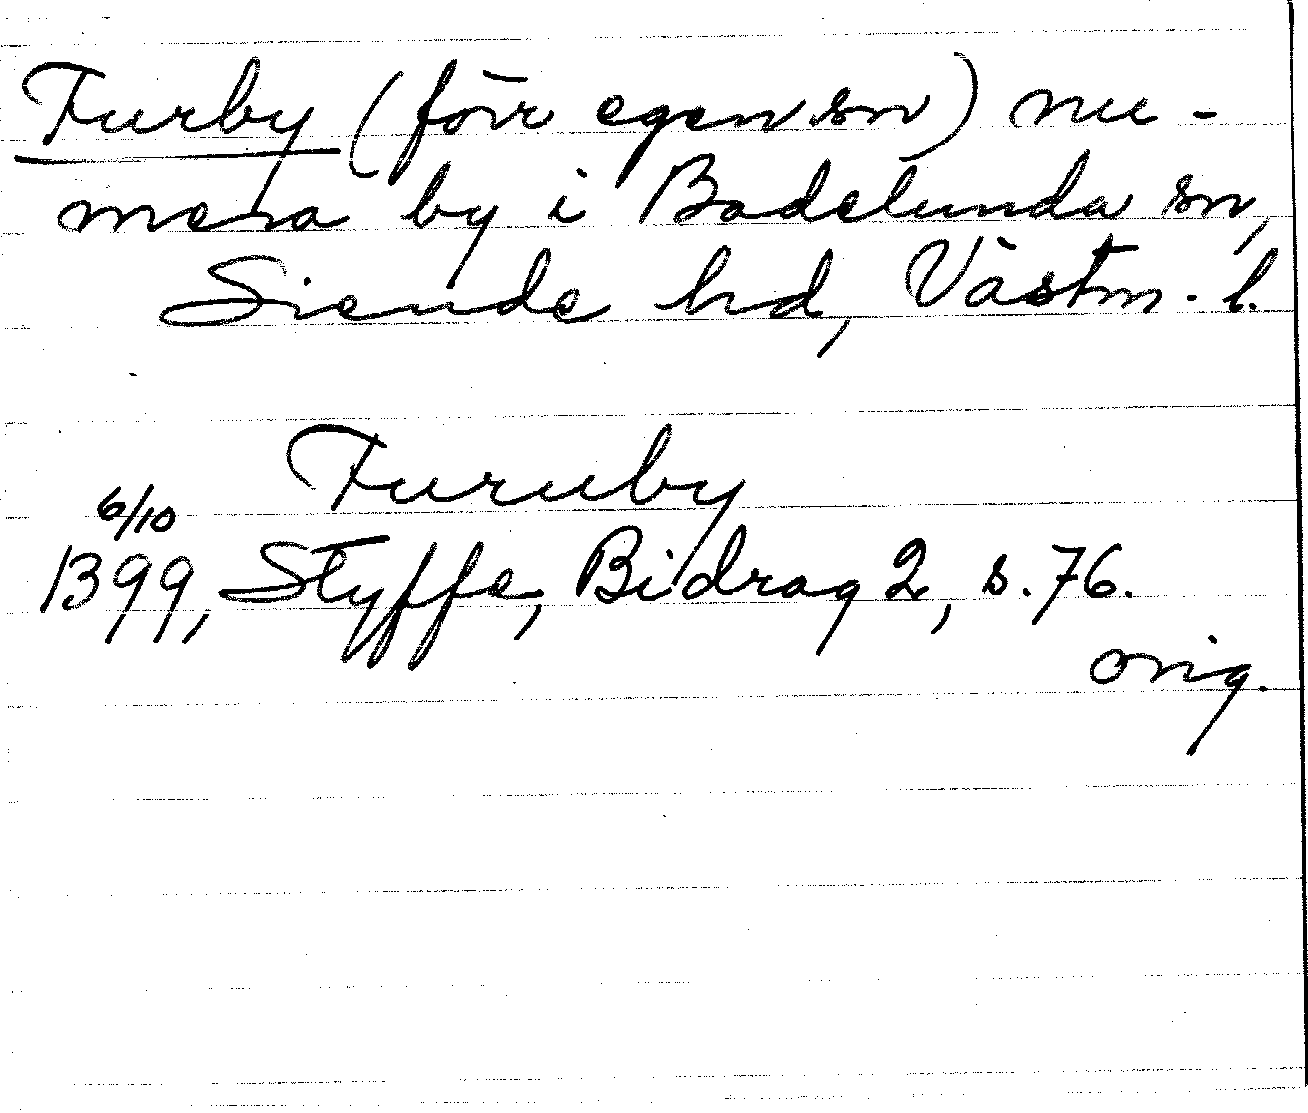 Furby (förr egen sn) nu-
mera by i Badelunda sn,
Siende hd, Västm. l.
Furuby
6/10
1399, Styffe, Bidrag 2, s. 76.
orig.